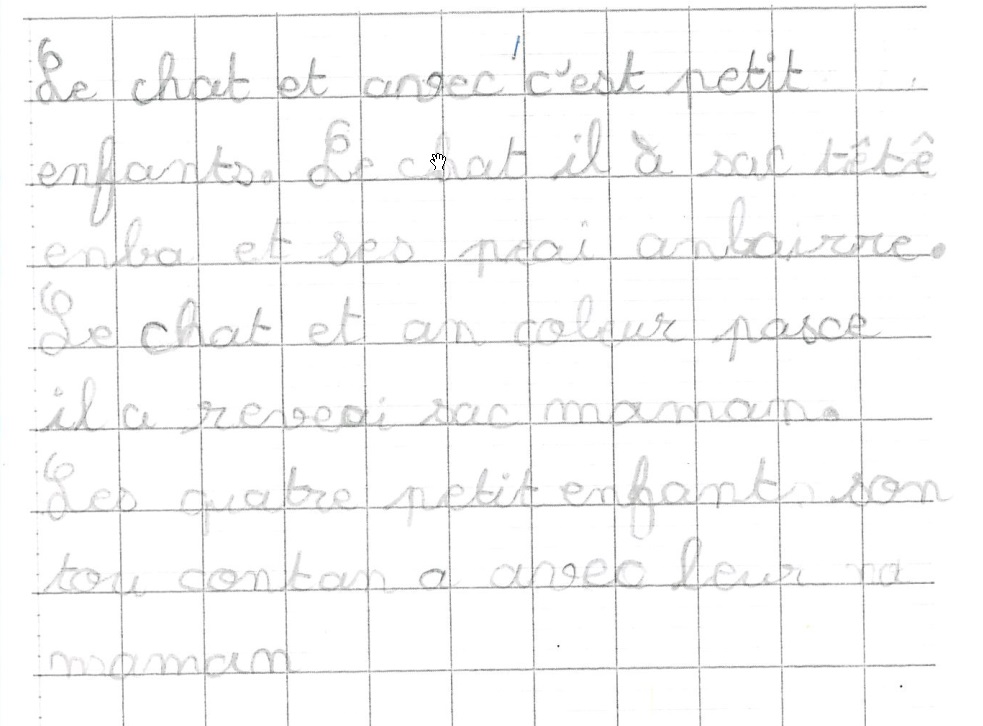 Le chat et avec c'est petit
enfants. Le chat il à sac têtê
enba et ses piai anbairre.
Le chat et an coleur pasce
il a reveoi sac maman.
Les quatre petit enfant son
tou contan a avec leur
maman